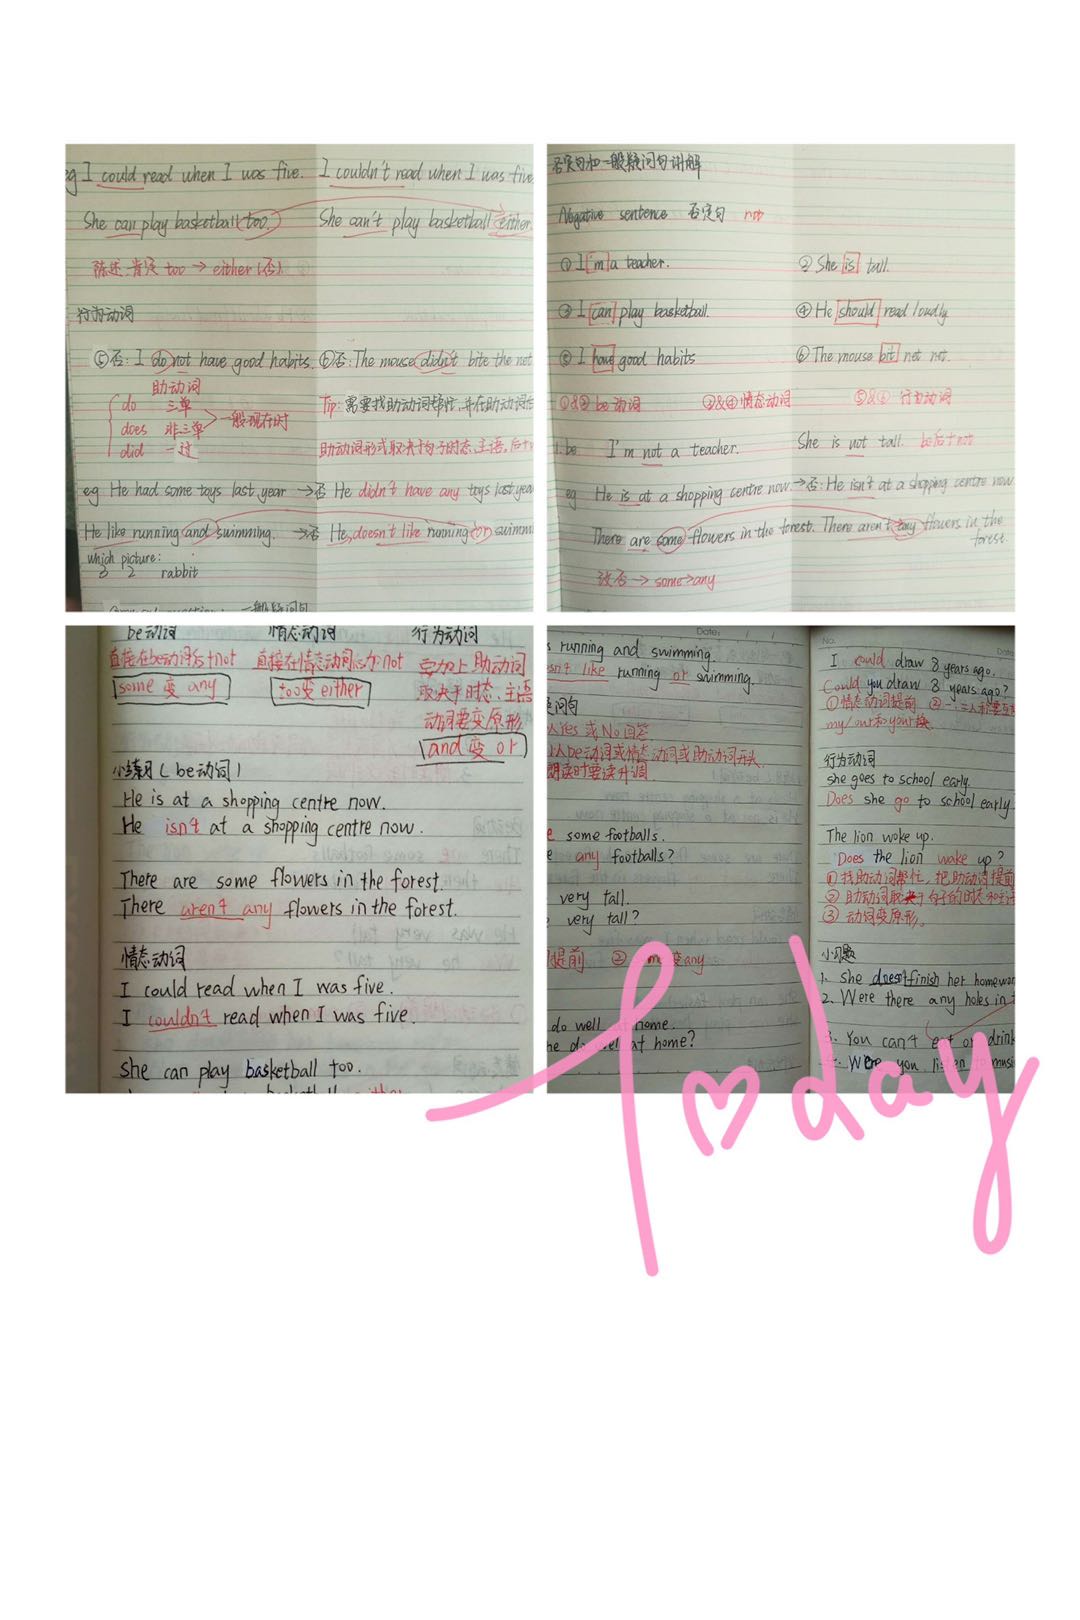 eg I could read when I was five. I couldn't read when I was five
She can play basketball too. She can't play basketball either.
陈述.肯定 too → either (否)
行为动词
⑤否: I do not have good habits. ⑥否: The mouse didn't bite the net
助动词
do 三单
does 非三单 一般现在时
did 一过
Tip: 需要找助动词帮忙,并在助动词后
助动词形式取决于句子时态.主语,后+v
eg He had some toys last year →否 He didn't have any toys last year
He like running and swimming. →否 He doesn't like running or swimm
which picture:
3 2 rabbit
一般疑问句
否定句和一般疑问句讲解
Negative sentence 否定句 not
① I'm a teacher. ② She is tall.
③ I can play basketball. ④ He should read loudly
⑤ I have good habits ⑥ The mouse bit net net.
①&② be动词 ③&④情态动词 ⑤&⑥ 行为动词
1. be I'm not a teacher. She is not tall. be后+not
eg He is at a shopping centre now. →否: He isn't at a shopping centre now
There are some flowers in the forest. There aren't any flowers in the
forest.
→ some→any
be动词 情态动词 行为动词
直接在be动词后+not 直接在情态动词后加not 要加上助动词
some 变 any too变 either 取决于时态、主语
动词要变原形
and 变 or
小练习(be动词)
He is at a shopping centre now.
He isn't at a shopping centre now.
There are some flowers in the forest.
There aren't any flowers in the forest.
情态动词
I could read when I was five.
I couldn't read when I was five.
She can play basketball too.
either
s running and swimming.
esn't like running or swimming.
疑问句
以Yes 或No 回答
以be动词或情态动词或助动词开头.
朗读时要读升调
e some footballs.
e any footballs?
very tall.
very tall?
提前 ② 变any
do well at home.
he do well at home?
Date:
No.
I could draw 8 years ago.
Could you draw 8 years ago?
①情态动词提前 ②一.二人称要互
my/our和your换
行为动词
she goes to school early.
Does she go to school early.
The lion woke up.
Does the lion wake up?
① 找助动词帮忙, 把助动词提前
② 助动词取决于句子的时态和主语
③ 动词变原形。
小习题
1. She doesn't finish her homewor
2. Were there any holes in t
3. You can't eat or drink
4. Were you listen to music
Today